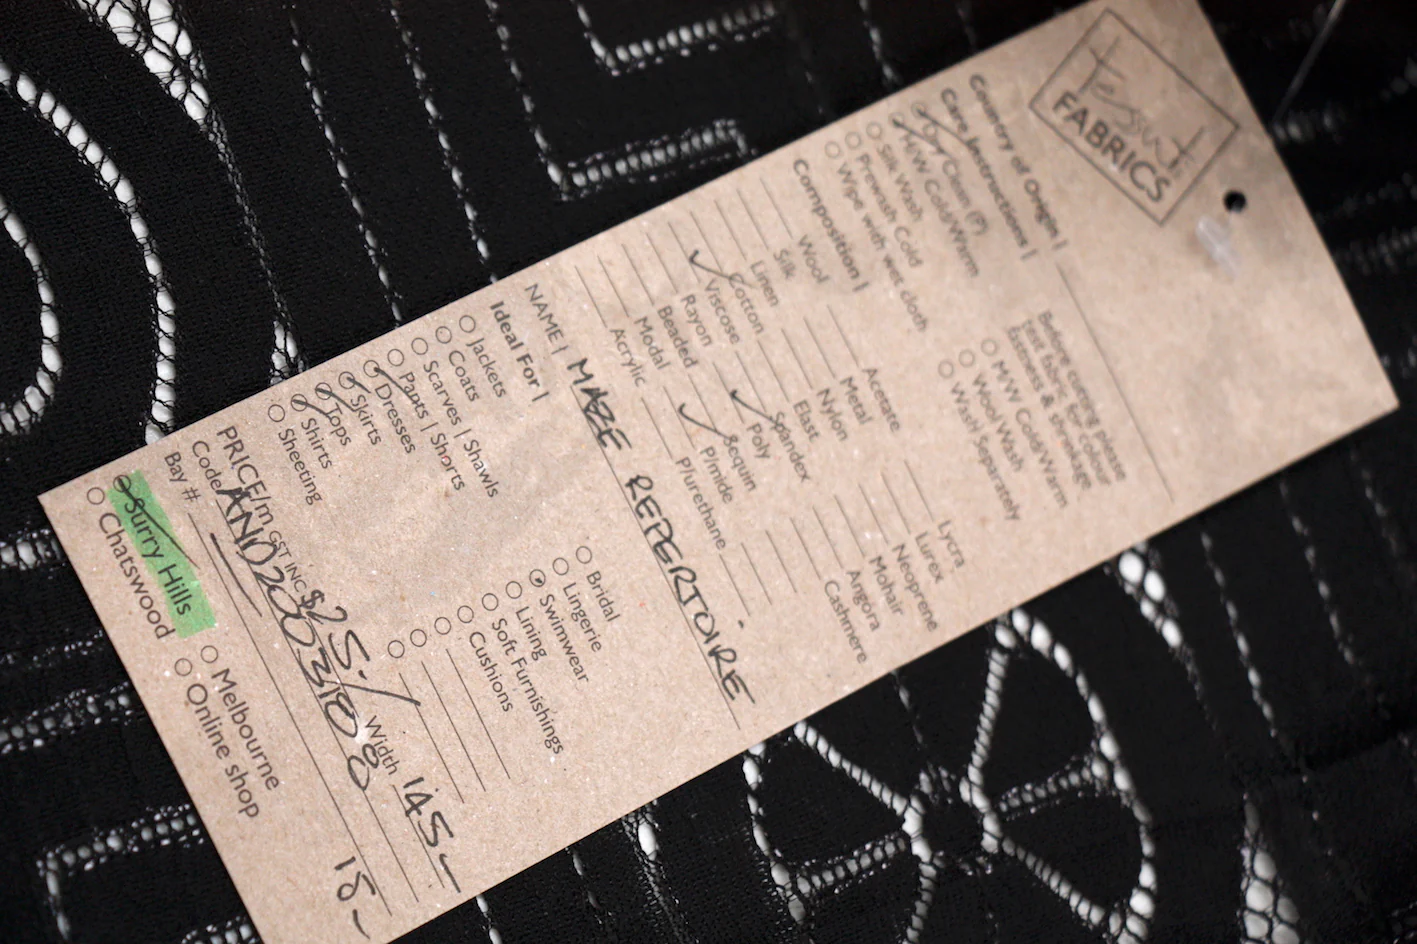 Tessuti
FABRICS
Country of Origin |
Care Instructions |
Dry Clean (P)
M/W Cold/Warm
Silk Wash
Prewash Cold
Wipe with wet cloth
Before cutting please
test fabric for colour
fastness & shrinkage.
M/W Cold/Warm
Wool Wash
Wash Separately
Composition |
Wool
Silk
Linen
Cotton
Viscose
Rayon
Beaded
Modal
Acrylic
Acetate
Metal
Nylon
Elast
Spandex
Poly
Sequin
P/mide
P/urethane
Lycra
Lurex
Neoprene
Mohair
Angora
Cashmere
NAME | MAZE REPERTOIRE
Ideal For |
Jackets
Coats
Scarves | Shawls
Pants | Shorts
Dresses
Skirts
Tops
Shirts
Sheeting
Bridal
Lingerie
Swimwear
Lining
Soft Furnishings
Cushions
PRICE/m GST INC $25./ Width 145-
Code AND2003180
Bay #. 18-
Surry Hills
Chatswood
Melbourne
Online shop